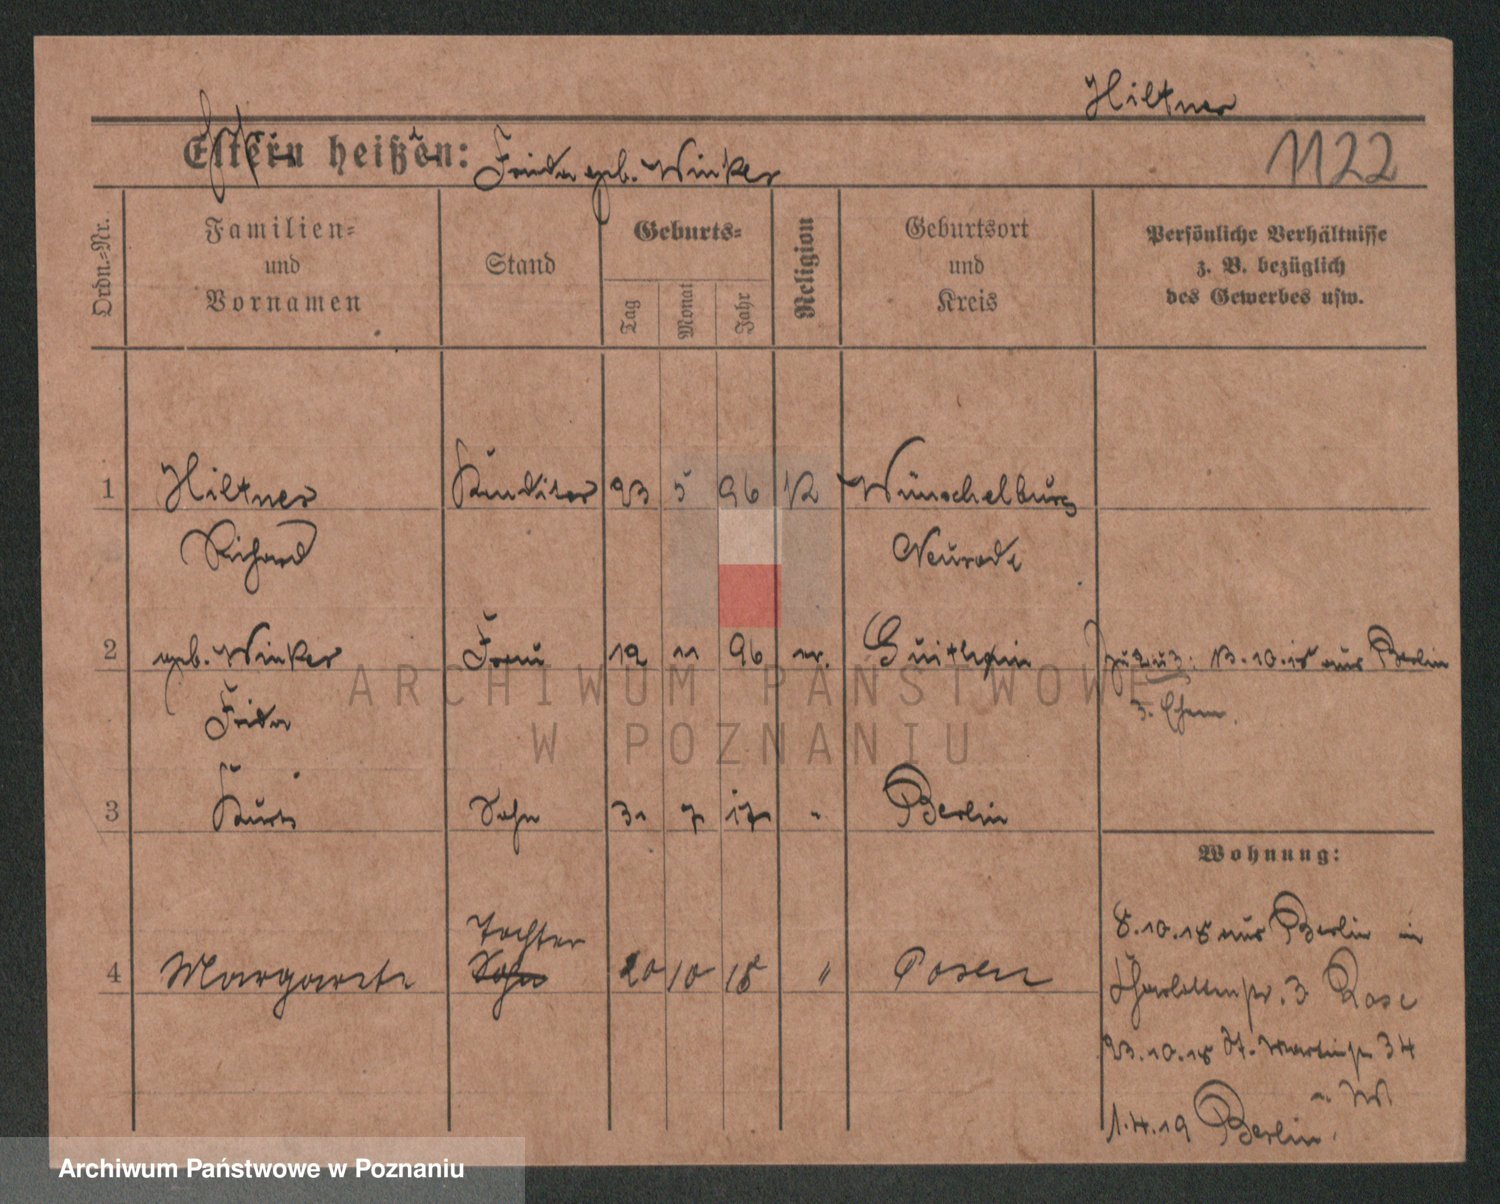 Hiltner
Eltern heißen: Frida geb. Winker
1122
Ordn.-Nr.
Familien-
und
Vornamen
Stand
Geburts-
Tag
Monat
Jahr
Religion
Geburtsort
und
Kreis
Persönliche Verhältnisse
z. B. bezüglich
des Gewerbes usw.
1 Hiltner Konditor 23 5 96 K Wünschelburg
Richard Neurode
2 geb. Winker Frau 12 11 96 ev. 13.10.18 aus Berlin
Frida z. Ehem.
3 Kurt Sohn 7 17 " Berlin
Wohnung:
Tochter
4 Margarete Sohn 20 10 18 " Posen
8.10.18 aus Berlin in
Charlottenstr. 3 Rose
23.10.18 St. Martinstr. 34
1.4.19 Berlin.
ARCHIWUM PAŃSTWOWE
W POZNANIU
Archiwum Państwowe w Poznaniu